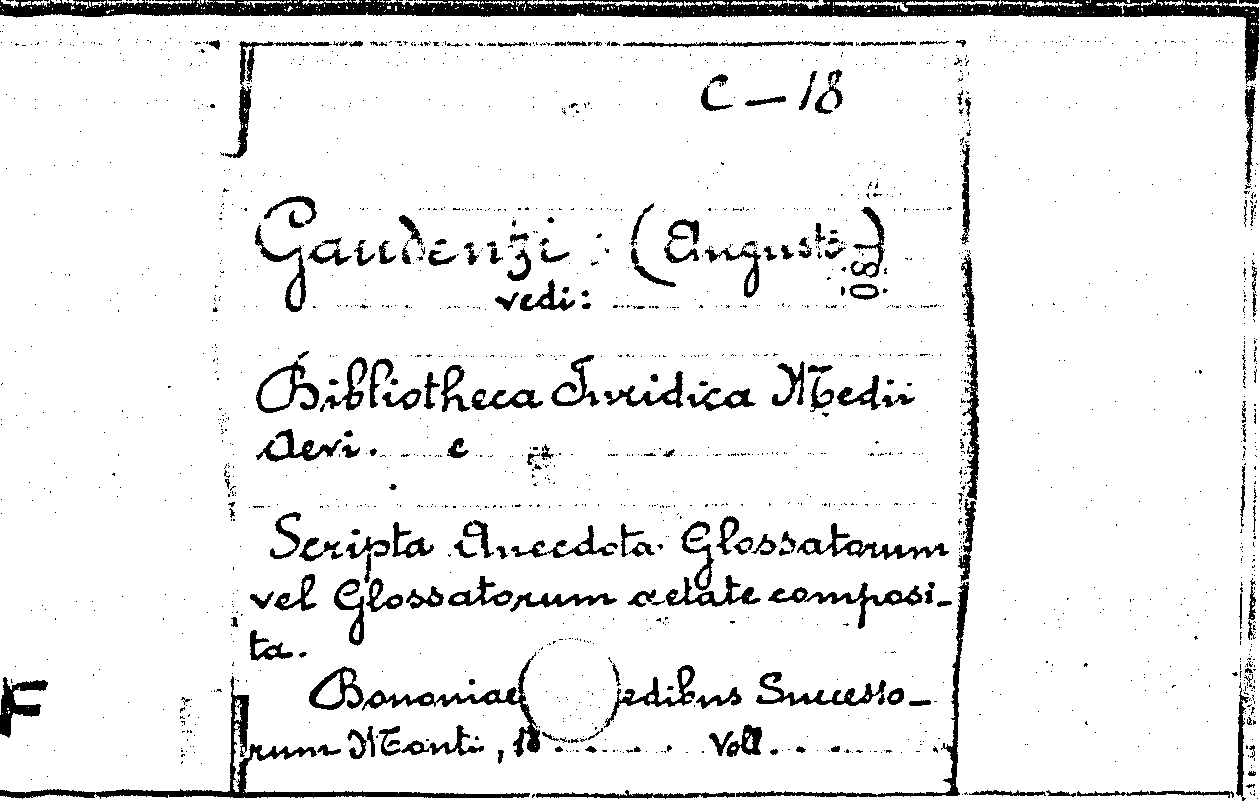 C - 18
Gaudenzi (Augusto)
vedi:
Bibliotheca Iuridica Medii
Aevi. e
Scripta Anecdota Glossatorum
vel Glossatorum aetate composi-
ta.
Bononiae edibus Successo-
rum Monti, 18.... Voll. ....
F